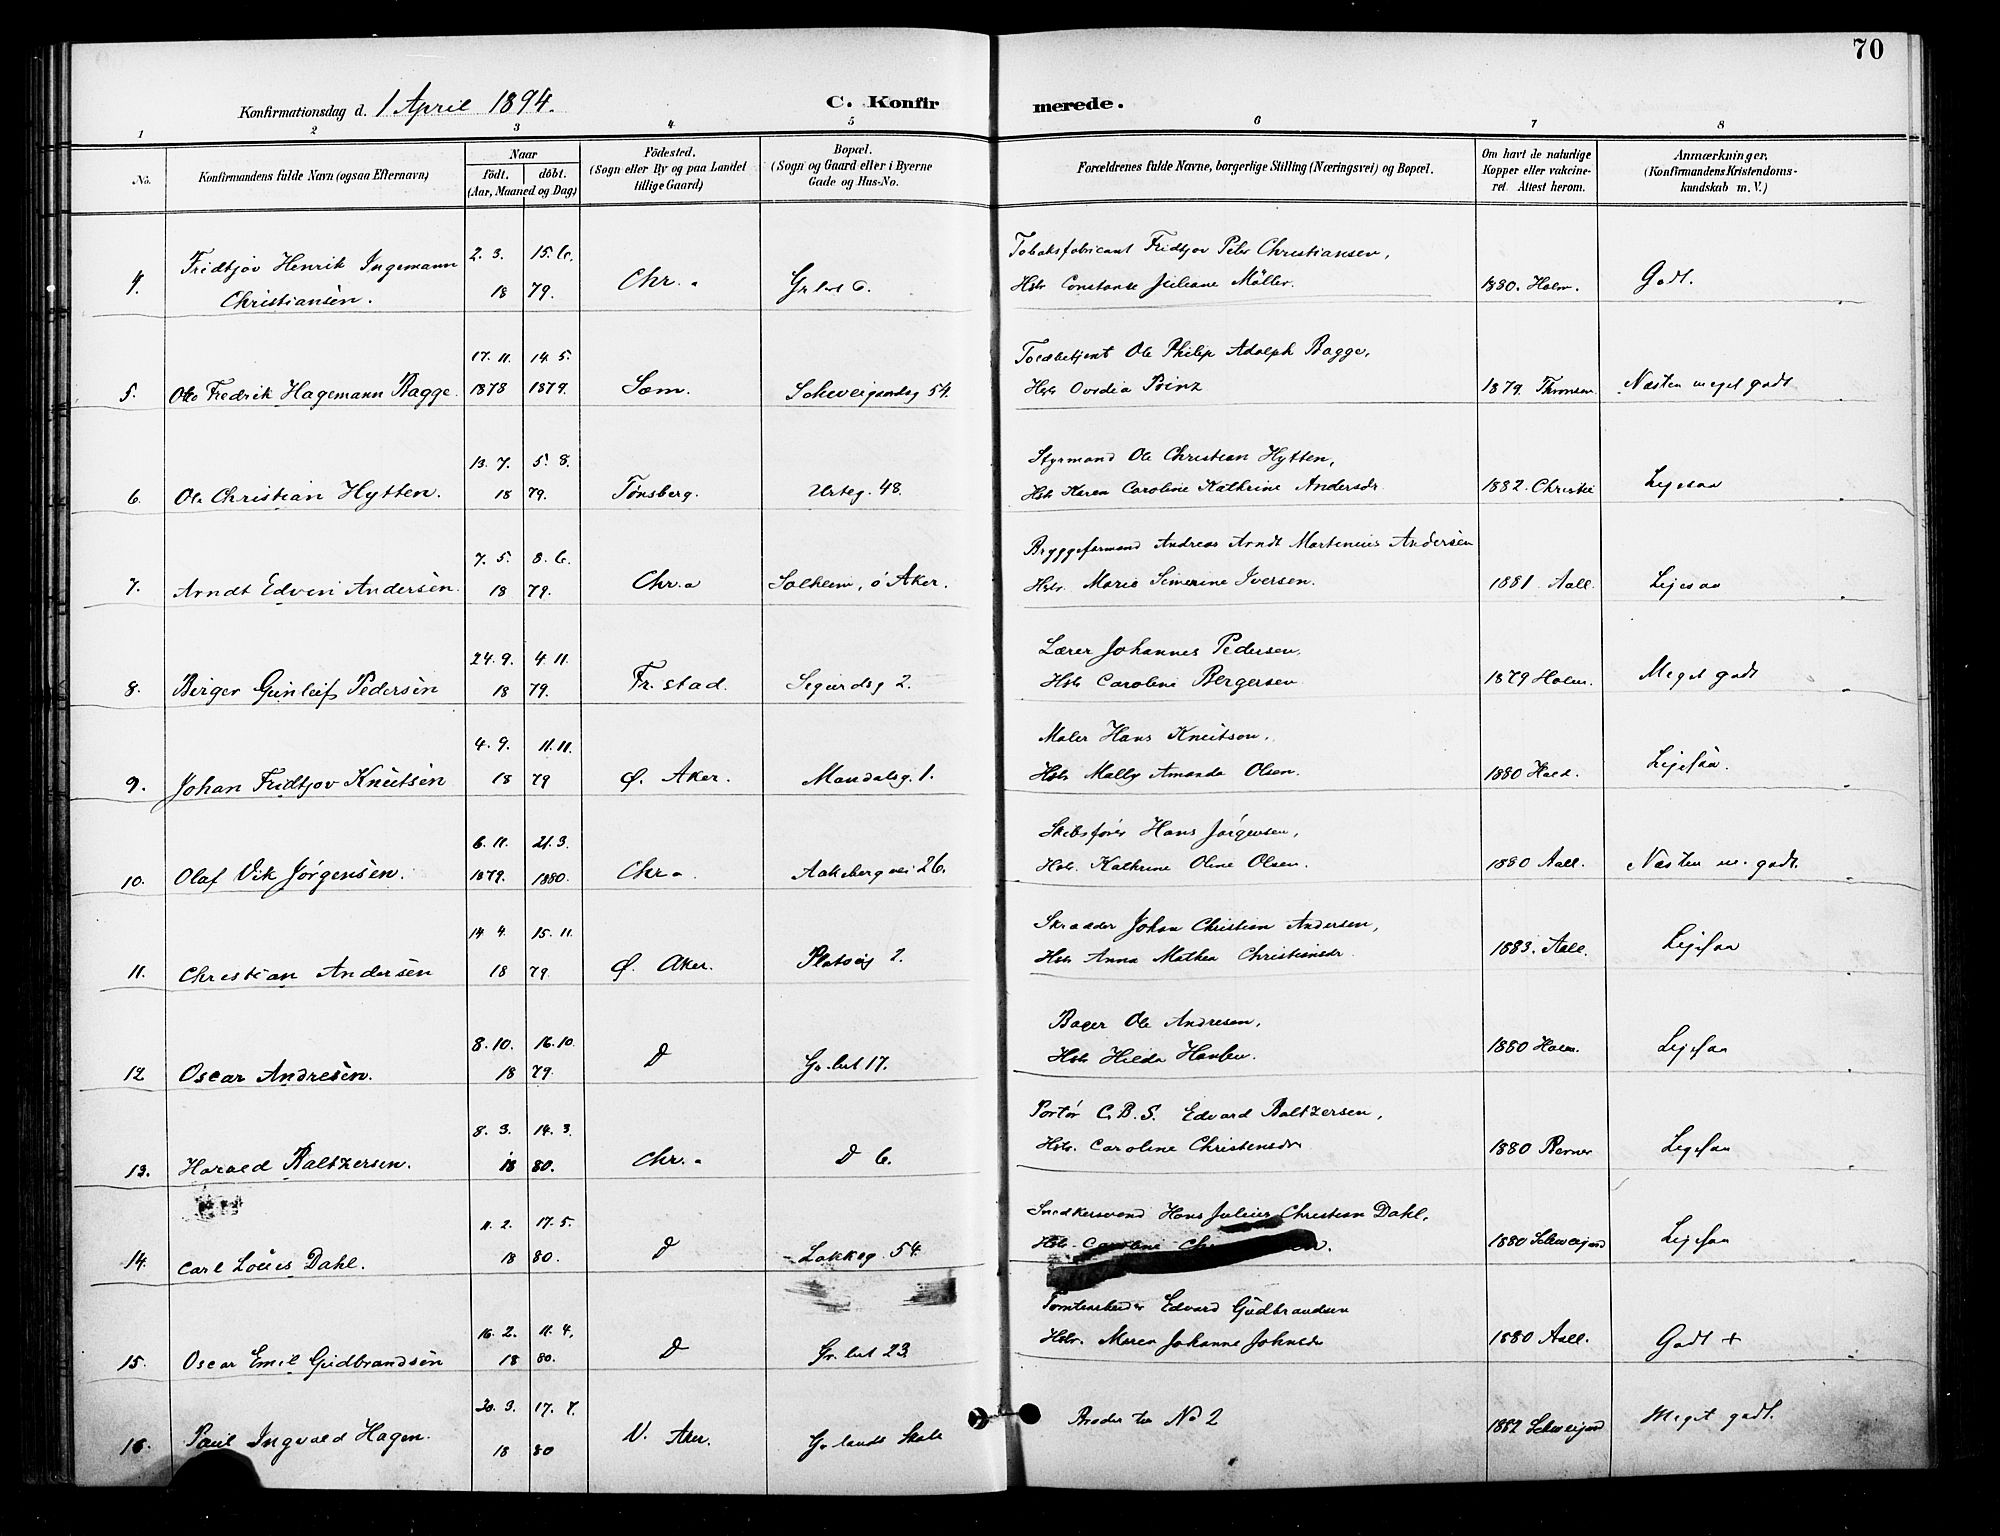 70
Konfirmationsdag d. 1 April 1894.
C. Konfirmerede.
1 2 3 4 5 6 7 8
No.
Konfirmandens fulde Navn (ogsaa Efternavn)
Naar
födt. döbt.
(Aar, Maaned og Dag)
Födested.
(Sogn eller By og paa Landet
tillige Gaard)
Bopæl.
(Sogn og Gaard eller i Byerne
Gade og Hus-No.
Forældrenes fulde Navne, borgerlige Stilling (Næringsvei) og Bopæl.
Om havt de naturlige
Kopper eller vakcine-
ret. Attest herom.
Anmærkninger,
(Konfirmandens Kristendoms-
kundskab m. V.)
4. Fridtjov Henrik Ingemann
Christiansen.
2. 3. 15. 6.
18 79.
Chr.a Gr.lert 6.
Tobaksfabricant Fridtjov Peter Christiansen,
Hstr Constance Juliane Möller.
1880. Holm. Godt.
5. Ole Fredrik Hagemann Bagge.
17. 11. 14. 5.
1878 1879.
Søm. Schweigaardsg 54.
Toldbetjent Ole Philip Adolph Bagge,
Hstr Ovidia Prinz
1879. Thomsen. Næsten meget godt
6. Ole Christian Hytten.
13. 7. 5. 8.
18 79.
Tønsberg. Urteg. 48.
Styrmand Ole Christian Hytten,
Hstr Karen Caroline Kathrine Andersdr.
1882. Christie Ligesaa
7. Arndt Edvin Andersen.
7. 5. 8. 6.
18 79.
Chr.a Solheim, Ø Aker.
Bryggeformand Andreas Arndt Martenius Andersen
Hstr. Marie Simerine Iversen.
1881 Aall. Ligesaa
8. Birger Gunleif Pedersen
24. 9. 4. 11.
18 79.
Fr.stad. Sigurdsg 2.
Lærer Johannes Pedersen,
Hstr Caroline Bergersen
1879 Holm. Meget godt
9. Johan Fridtjov Knutsen
4. 9. 11. 11.
18 79
Ø. Aker. Mandalsg. 1.
Maler Hans Knutson,
Hstr Mally Amanda Olsen.
1880 Ligesaa.
10. Olaf Vik Jørgensen.
6. 11. 21. 3.
1879. 1880.
Chr.a Aakebergvei 26.
Skibsfører Hans Jörgensen,
Hstr. Kathrine Oline Olsen.
1880 Aall. Næsten m. godt.
11. Christian Andersen
14. 4. 15. 11.
18 79.
Ø. Aker. Platoug 2.
Skrædder Johan Christian Andersen,
Hstr Anna Mathea Christiansdr
1883. Aall. Ligesaa
12 Oscar Andresen.
8. 10. 16. 10.
18 79.
D Gr.lert 17.
Bager Ole Andresen,
Hstr Hilda Hansen.
1880 Holm. Ligesaa
13. Harald Baltzersen.
8. 3. 14. 3.
18 80.
Chr.a D 6.
Portør C. B. S. Edvard Baltzersen,
Hstr. Caroline Christensdr
1880 Berner Ligesaa
14. Carl Louis Dahl.
11. 2. 17. 5.
18 80.
D Lakkeg 54
Snedkersvend Hans Julius Christian Dahl,
Hstr. Caroline
1880 Schweigaard Ligesaa
15. Oscar Emil Gudbrandsen
16. 2. 11. 4.
18 80.
D Gr.lert 23.
Tomtearbeider Edvard Gudbrandsen
Hstr. Maren Johanne Johnsdr
1880 Aall. Godt +
16. Paul Ingvald Hagen.
20. 3. 17. 7.
18 80
V. Aker. Gr.lands Skole
Broder til No 2
1882 Schweigaard Meget godt.